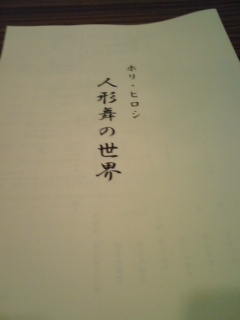 ホリ・ヒロシ
人形舞の世界